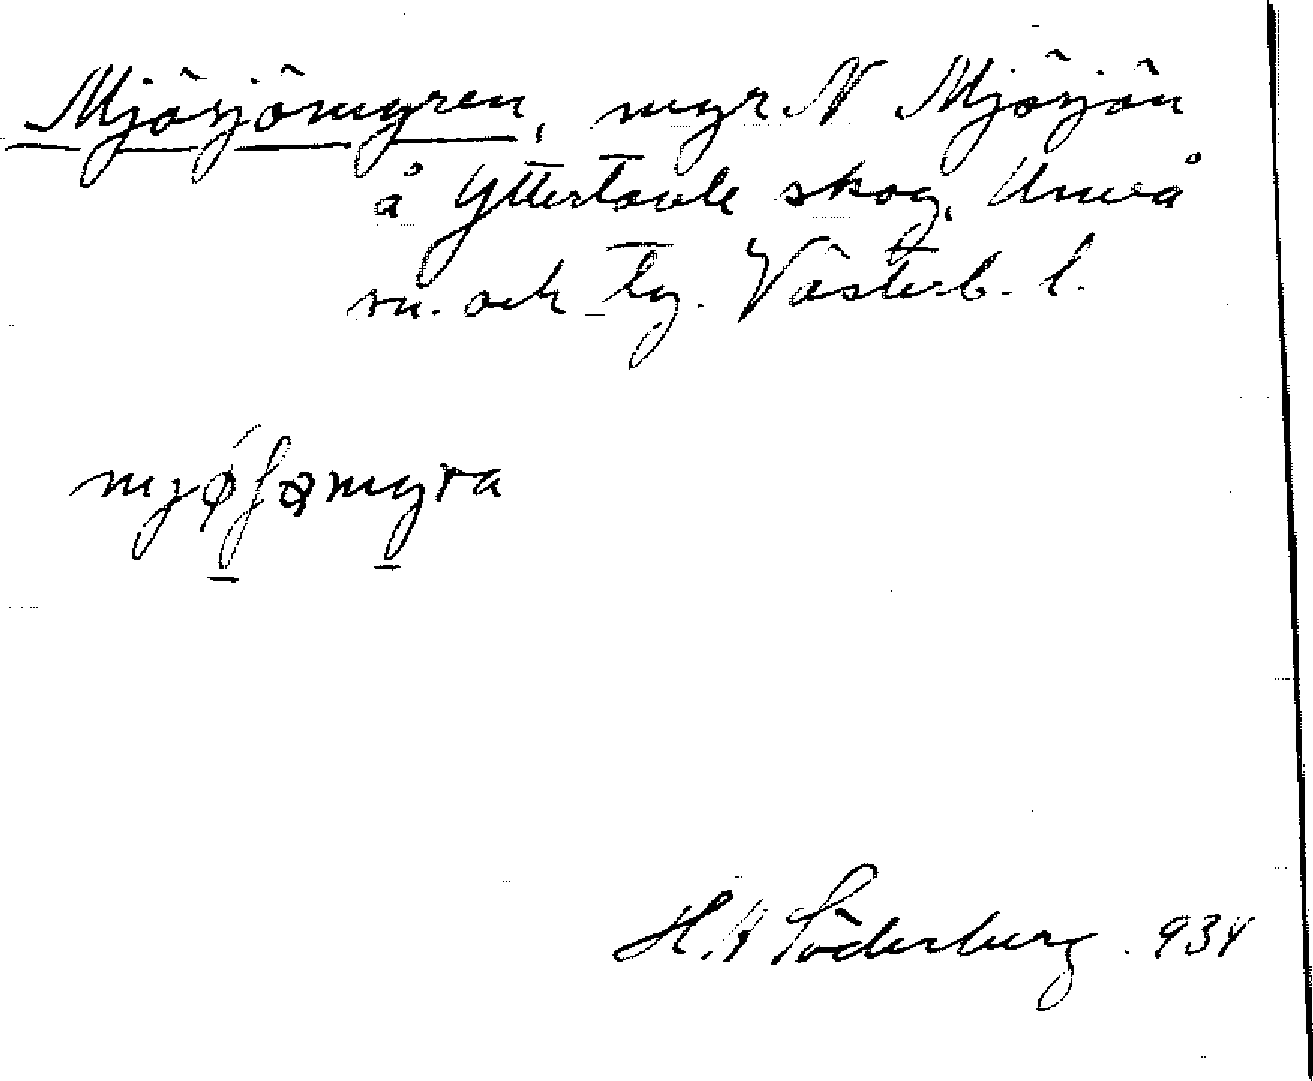 Mjösjömyren, myr N Mjösjön
å Yttertavle skog, Umeå
sn. och tg. Västerb. l.
H. A Söderberg. 934